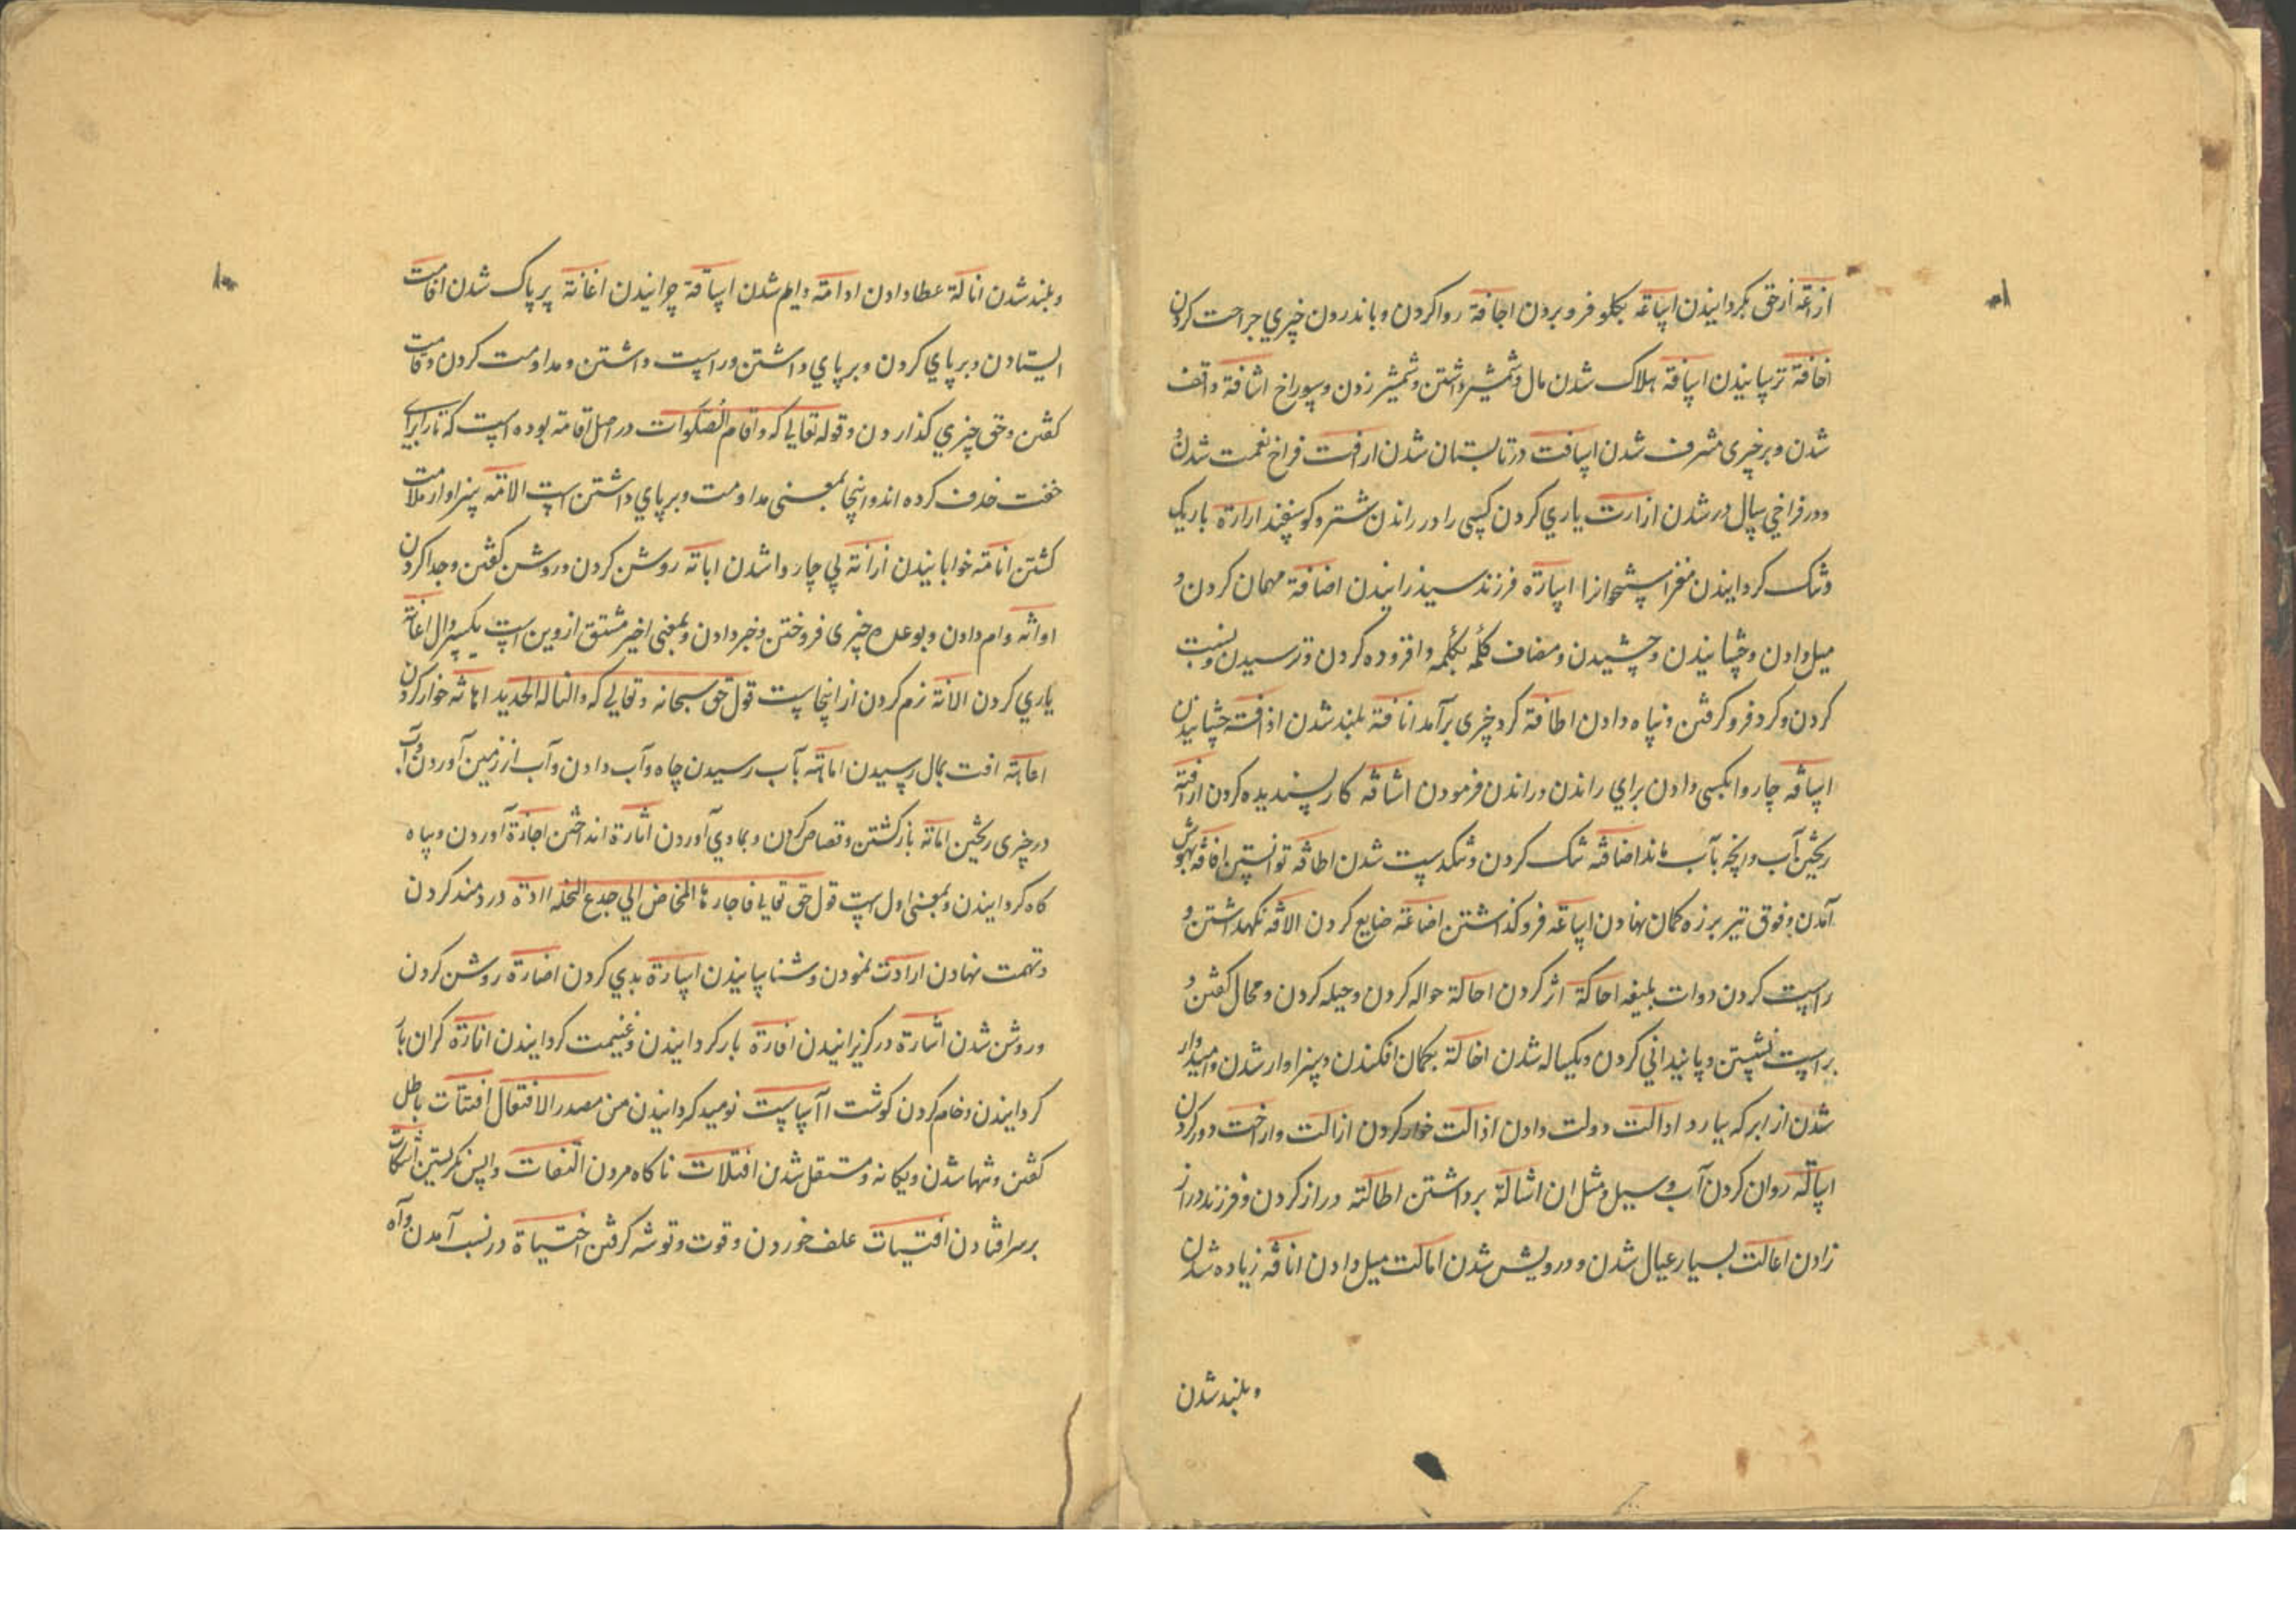 ازاغه ازحق بکردانیدن اساغه بکلو فرو بردن اجافة روا کردن و باندرون چیزي جراحت کردن
اخافة ترسانیدن اسافة هلاک شدن مال و شمشیر داشتن و شمشیر زدن و سوراخ اشافة واقف
شدن و بر چیزی مشرف شدن اسافت در تابستان شدن ارافت فراخ نعمت شدن و
و در فراخي سال در شدن ازارت یاري کردن کسی را در راندن شتر و کوسفند ارارة باریک
و تنک کردانیدن مغز استخوانرا اسارة فرزند سید زانیدن اضافة مهمان کردن و
میل دادن و چشانیدن و چشیدن و مضاف کلمه بکلمه و افزوده کردن و ترسیدن و نسبت
کردن و کرد فرو کرفتن و پناه دادن اطافة کرد چیزی برآمدن انافة بلند شدن اذاقت چشانیدن
اساقه چاروا بکسی دادن براي راندن و راندن فرمودن اشاقه کار پسندیده کردن اراقة
ریختن آب و آنچه بآب ماند اضاقه تنک کردن و تنکدست شدن اطاقه توانستن افاقه بهوش
آمدن و فوق تیر بر زه کمان نهادن اساغه فرو کذاشتن اضاعة ضایع کردن الاقه نکهداشتن و
راست کردن دوات بلیقه احاکة اثر کردن احالة حواله کردن و حیله کردن و محال کفتن و
براست نشستن و پایندانی کردن و یکساله شدن اخالة بکمان افکندن و سزاوار شدن و امیدوار
شدن از ابر که ببارد ادالت دولت دادن اذالت خوار کردن ازالت وازاحت دور کردن
اسالة روان کردن آب و سیل و مثل ان اشالة برداشتن اطالته دراز کردن و فرزند دراز
زادن اعالت بسیار عیال شدن و درویش شدن امالت میل دادن انافه زیاده شدن
و بلند شدن
و بلند شدن انالة عطا دادن ادامة دایم شدن اسامة چرانیدن اغانة پر پاک شدن اقامت
ایستادن و بر پاي کردن و بر پاي داشتن و راست داشتن و مداومت کردن و قامت
کفتن و حق چیزي کذاردن و قوله تعالي که و اقام الصلوات در اصل اقامة بوده است که تا را براي
خفت حذف کرده اند و اینجا بمعنی مداومت و بر پاي داشتن است الامة سزاوار ملامت
کشتن انامة خوابانیدن ازانة بي چاروا شدن ابانة روشن کردن و روشن کفتن و جدا کردن
ادانه وام دادن و بوعده چیزی فروختن و خبر دادن و بمعنی اخیر مشتق از وین است بکسر دال اعانة
یاري کردن الانة نرم کردن از اینجاست قول حق سبحانه و تعالي که و النا له الحدید اهانه خوار کردن
اعاهة افت بمال رسیدن اماهة بآب رسیدن چاه و آب دادن و آب از زمین آوردن و آب
در چیزی ریختن اباءة بازکشتن و قصاص کردن و بمادي آوردن اثارة انداختن اجاءة آوردن و پناه
کاه کردانیدن و بمعنی اول است قول حق تعالي فاجاءها المخاض الي جذع النخلة اادة دردمند کردن
و تهمت نهادن ارادت نمودن و شناسانیدن اساءة بدي کردن اضاءة روشن کردن
و روشن شدن اشارة در کزیزانیدن افاءة بار کردانیدن و غنیمت کردانیدن اناءة کران بار
کردانیدن و خام کردن کوشت اآیاست نومید کردانیدن من مصدر الافتعال افتئات باطل
کفتن و تنها شدن و یکانه و مستقل شدن افتلات ناکاه مردن التفات واپس نکریستن انتکات
بر سر افتادن اقتیات علف خوردن و قوت و توشه کرفتن اختیاة در نسب آمدن و آه